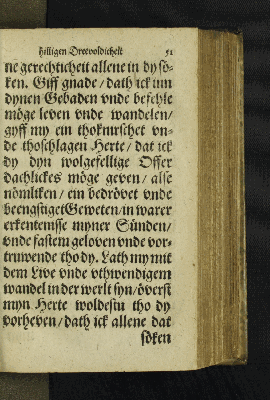 hilligen Dreevoldicheit 51
ne gerechticheit allene in dy sö-
ken. Giff gnade / dath ick inn
dynen Gebaden vnde befehle
möge leven vnde wandelen /
gyff my ein thoknurschet vn-
de thoschlagen Herte / dat ick
dy dyn wolgefellige Offer
dachlickes möge geven / alse
nömliken / ein bedrövet vnde
beengstiget Geweten / in warer
erkentenisse myner Sünden /
vnde fastem geloven vnde vor-
truwende tho dy. Lath my mit
dem Live vnde vthwendigem
wandel in der werlt syn / överst
myn Herte woldestu tho dy
vorheven / dath ick allene dat
söken